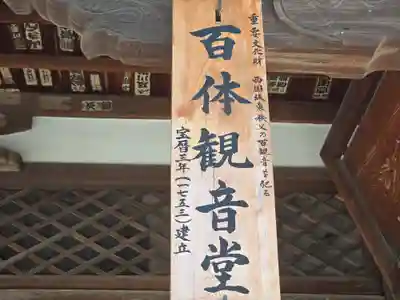 重要文化財　西国坂東秩父の百観音を祀る
百体観音堂
宝暦三年(一七五三)建立